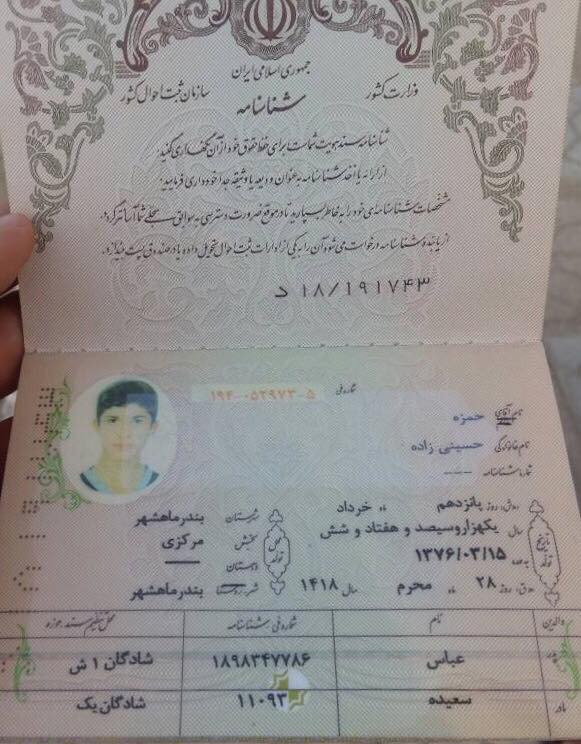 جمهوری اسلامی ایران
وزارت کشور
سازمان ثبت احوال کشور
شناسنامه
شناسنامه سند هویت شماست برای حفظ حقوق خود از آن نگهداری کنید.
از ارائه یا اخذ شناسنامه به عنوان ودیعه یا وثیقه جدا خودداری فرمایید.
مشخصات شناسنامه‌ای خود را به خاطر بسپارید تا در موقع ضرورت دسترسی به سوابق سجلی شما آسانتر گردد.
از یابنده شناسنامه درخواست می‌شود آن را به یکی از ادارات ثبت احوال تحویل داده یا در صندوق پست بیندازد.
د ۱۸/۱۹۱۷۴۳
شماره ملی ۱۹۴-۰۵۲۹۷۳-۵
نام آقای حمزه
نام خانوادگی حسینی زاده
شماره شناسنامه ---
تاریخ تولد
روز پانزدهم ماه خرداد
سال یکهزاروسیصد و هفتاد و شش
۱۳۷۶/۰۳/۱۵
روز ۲۸ ماه محرم سال ۱۴۱۸
محل تولد
شهرستان بندرماهشهر
بخش مرکزی
دهستان
شهر بندرماهشهر
والدین نام شماره ملی شناسنامه محل تنظیم سند حوزه
پدر عباس ۱۸۹۸۳۴۷۷۸۶ شادگان ۱ ش
مادر سعیده ۱۱۰۹۳ شادگان یک